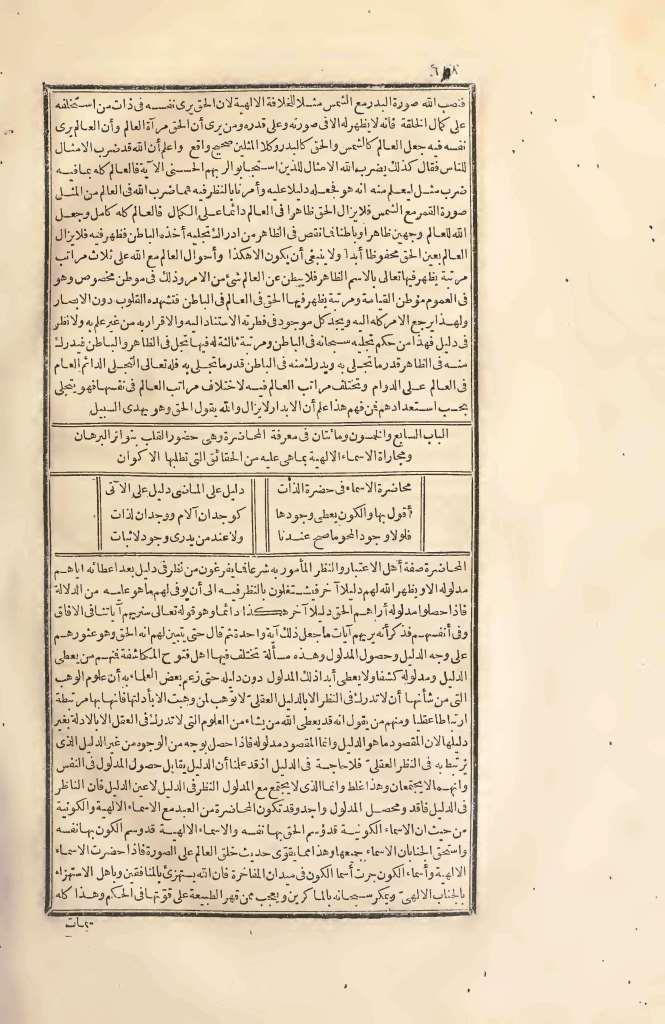 فنصب الله صورة البدر مع الشمس مثلا للخلافة الالهية لان الحق يرى نفسه في ذات من استخلفه
على كمال الخلقة فانه لا يظهر له الا في صورته وعلى قدره ومن يرى أن الحق مرآة العالم وأن العالم يرى
نفسه فيه جعل العالم كالشمس والحق كالبدر وكلا المثلين صحيح واقع واعلم أن الله قد ضرب الامثال
للناس فقال كذلك يضرب الله الامثال للذين استجابوا لربهم الحسنى الآية فالعالم كله بما فيه
ضرب مثل ليعلم منه انه هو فجعله دليلا عليه وأمرنا بالنظر فيه فما ضرب الله في العالم من المثل
صورة القمر مع الشمس فلا يزال الحق ظاهرا في العالم دائما على الكمال فالعالم كله كامل وجعل
الله للعالم وجهين ظاهرا وباطنا فما نقص في الظاهر من ادراك تجليه أخذه الباطن فظهر فيه فلا يزال
العالم بعين الحق محفوظا أبدا ولا ينبغي أن يكون الا هكذا وأحوال العالم مع الله على ثلاث مراتب
مرتبة يظهر فيها تعالى بالاسم الظاهر فلا يبطن عن العالم شئ من الامر وذلك في موطن مخصوص وهو
في العموم موطن القيامة ومرتبة يظهر فيها الحق في العالم في الباطن فتشهده القلوب دون الابصار
ولهذا يرجع الامر كله اليه ويجد كل موجود في فطرته الاستناد اليه والاقرار به من غير علم به ولا نظر
في دليل فهذا من حكم تجليه سبحانه في الباطن ومرتبة ثالثة له فيها تجل في الظاهر والباطن فيدرك
منه في الظاهر قدر ما تجلى به ويدرك منه في الباطن قدر ما تجلى به فله تعالى التجلى الدائم العام
في العالم على الدوام وتختلف مراتب العالم فيه لاختلاف مراتب العالم في نفسها فهو يتجلى
بحسب استعدادهم فمن فهم هذا علم أن الابدار لا يزال والله يقول الحق وهو يهدى السبيل
الباب السابع والخمسون ومائتان في معرفة المحاضرة وهى حضور القلب بتواتر البرهان
ومجاراة الاسماء الالهية بما هى عليه من الحقائق التى تطلبها الاكوان
محاضرة الاسماء في حضرة الذات دليل على الماضى دليل على الآتى
أقول بها والكون يعطى وجودها كوجدان آلام ووجدان لذات
فلولا وجود المحو ما صح عندنا ولا عند من يدرى وجود لاثبات
المحاضرة صفة أهل الاعتبار والنظر المأمور به شرعا فما يفرغون من نظر في دليل بعد اعطائه اياهم
مدلوله الا ويظهر الله لهم دليلا آخر فيشتغلون بالنظر فيه الى أن يوفى لهم ما هو عليه من الدلالة
فاذا حصلوا مدلوله أراهم الحق دليلا آخر هكذا دائما وهو قوله تعالى سنريهم آياتنا في الآفاق
وفي أنفسهم فذكر أنه يريهم آيات ما جعل ذلك آية واحدة ثم قال حتى يتبين لهم انه الحق وهو عثورهم
على وجه الدليل وحصول المدلول وهذه مسألة تختلف فيها أهل فتوح المكاشفة فمنهم من يعطى
الدليل ومدلوله كشفا ولا يعطى أبدا ذلك المدلول دون دليله حتى زعم بعض العلماء به أن علوم الوهب
التى من شأنها أن لا تدرك في النظر الا بالدليل العقلى لا توهب لمن وهبت الا بأدلتها فانها بها مرتبطة
ارتباطا عقليا ومنهم من يقول انه قد يعطى الله من يشاء من العلوم التى لا تدرك في العقل الا بالادلة بغير
دليلها لان المقصود ما هو الدليل وانما المقصود مدلوله فاذا حصل بوجه من الوجوه من غير الدليل الذى
يرتبط به في النظر العقلى فلا حاجة في الدليل اذ قد علمنا أن الدليل يقابل حصول المدلول في النفس
وانهما لا يجتمعان وهذا غلط وانما الذى لا يجتمع مع المدلول النظر في الدليل لا عين الدليل فان الناظر
في الدليل فاقد ومحصل المدلول واجد وقد تكون المحاضرة من العبد مع الاسماء الالهية والكونية
من حيث ان الاسماء الكونية قد وسم الحق بها نفسه والاسماء الالهية قد وسم الكون بها نفسه
واستحق الجنابان الاسماء جميعها وهذا مما يقوى حديث خلق العالم على الصورة فاذا حضرت الاسماء
الالهية وأسماء الكون جرت أسماء الكون في ميدان المفاخرة فان الله يستهزئ بالمنافقين وباهل الاستهزاء
بالجناب الالهى ويمكر سبحانه بالماكرين ويعجب ممن قهر الطبيعة على قوتها في الحكم وهذا كله